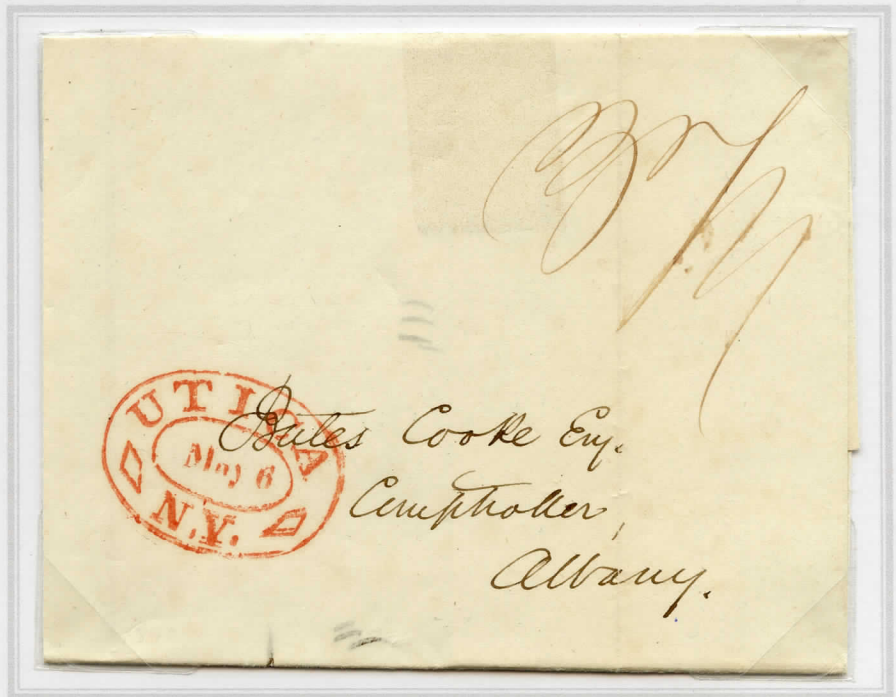 UTICA
May 6
N.Y.
Bates Cooke Esq.
Comptroller,
Albany.